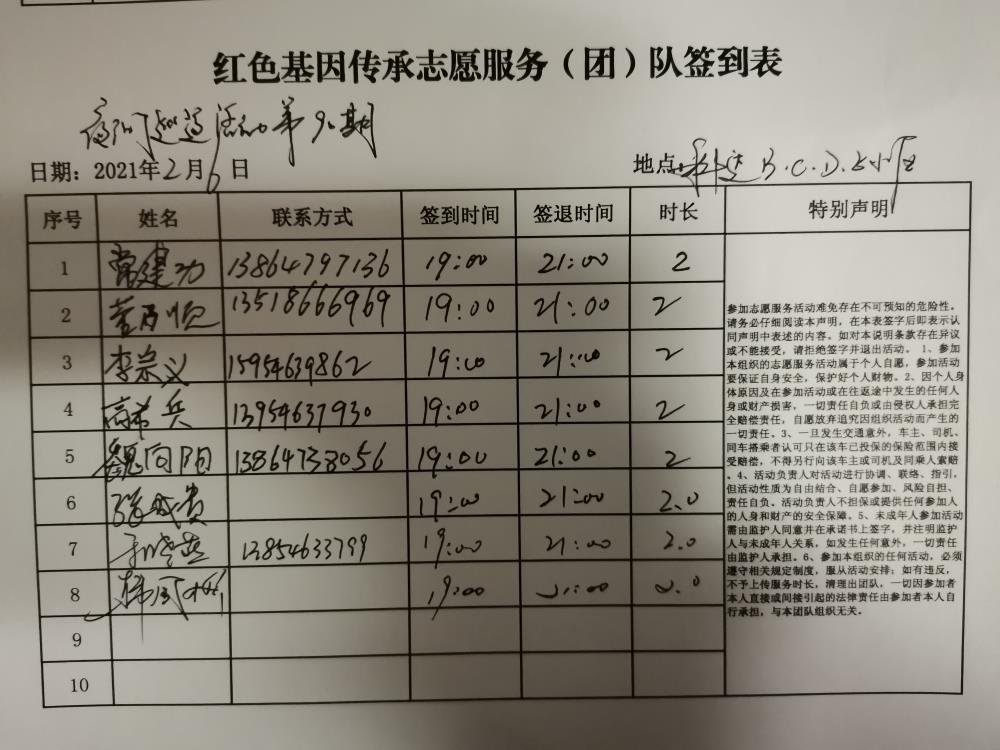 红色基因传承志愿服务（团）队签到表
夜间巡逻活动第9期
日期：2021年2月6日 地点: B.C.D.
序号 姓名 联系方式 签到时间 签退时间 时长 特别声明
1 常建功 13864797136 19:00 21:00 2
2 13518666969 19:00 21:00 2
3 李宗义 15954639862 19:00 21:00 2
4 高希兵 13954637930 19:00 21:00 2
5 魏向阳 13864738056 19:00 21:00 2
6 张成贵 19:00 21:00 2.0
7 13854633799 19:00 21:00 2.0
8 19:00 21:00 2.0
9
10
参加志愿服务活动难免存在不可预知的危险性。
请务必仔细阅读本声明，在本表签字后即表示认
同声明中表述的内容。如对本说明条款存在异议
或不能接受，请拒绝签字并退出活动。 1、参加
本组织的志愿服务活动属于个人自愿，参加活动
要保证自身安全，保护好个人财物。2、因个人身
体原因及在参加活动或在往返途中发生的任何人
身或财产损害，一切责任自负或由侵权人承担完
全赔偿责任，自愿放弃追究因组织活动而产生的
一切责任。3、一旦发生交通意外，车主、司机、
同车搭乘者认可只在该车已投保的保险范围内接
受赔偿，不得另行向该车主或司机及同乘人索赔
。4、活动负责人对活动进行协调、联络、指引，
但活动性质为自由结合、自愿参加、风险自担、
责任自负。活动负责人不担保或提供任何参加人
的人身和财产的安全保障。5、未成年人参加活动
需由监护人同意并在承诺书上签字，并注明监护
人与未成年人关系，如发生任何意外，一切责任
由监护人承担。6、参加本组织的任何活动，必须
遵守相关规定制度，服从活动安排；如有违反，
不予上传服务时长，清理出团队，一切因参加者
本人直接或间接引起的法律责任由参加者本人自
行承担，与本团队组织无关。